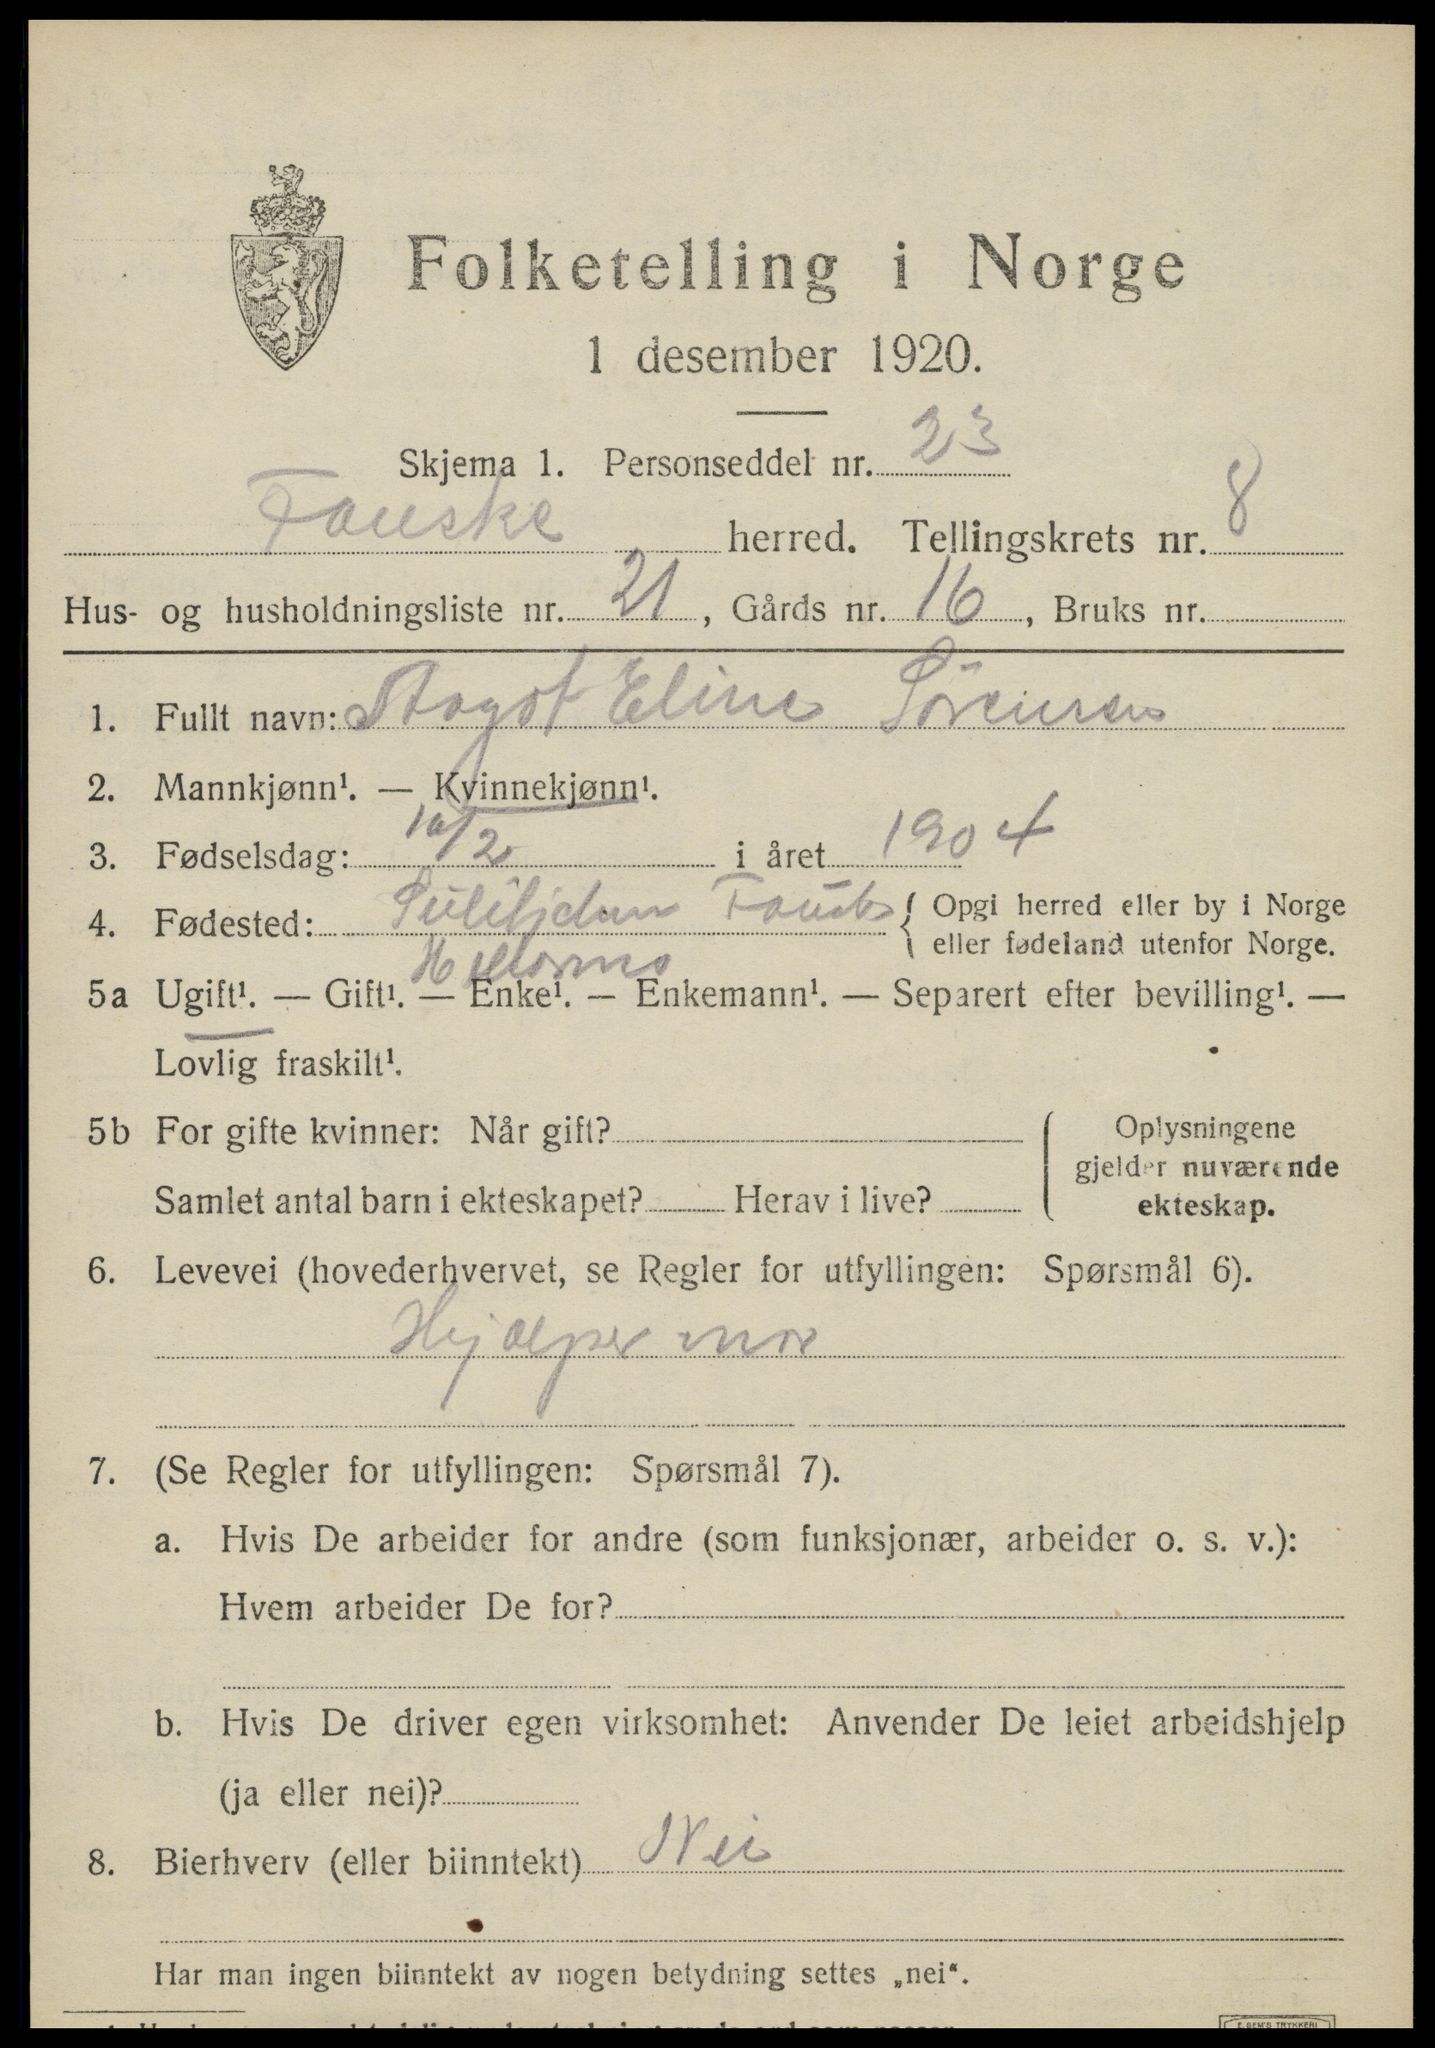 Folketelling i Norge
1 desember 1920.
Skjema 1. Personseddel nr. 23
Fauske herred. Tellingskrets nr. 8
Hus- og husholdningsliste nr. 21, Gårds nr. 16, Bruks nr.
1. Fullt navn: Aagot Eline Sörensen
2. Mannkjønn¹. — Kvinnekjønn¹.
3. Fødselsdag: 10/2 i året 1904
4. Fødested: Sulitjelma Fauske { Opgi herred eller by i Norge
eller fødeland utenfor Norge.
5a Ugift¹. — Gift¹. — Enke¹. — Enkemann¹. — Separert efter bevilling¹. —
Lovlig fraskilt¹.
5b For gifte kvinner: Når gift?
Samlet antal barn i ekteskapet? Herav i live?
Oplysningene
gjelder nuværende
ekteskap.
6. Levevei (hovederhvervet, se Regler for utfyllingen: Spørsmål 6).
Hjælper mor
7. (Se Regler for utfyllingen: Spørsmål 7).
a. Hvis De arbeider for andre (som funksjonær, arbeider o. s. v.):
Hvem arbeider De for?
b. Hvis De driver egen virksomhet: Anvender De leiet arbeidshjelp
(ja eller nei)?
8. Bierhverv (eller biinntekt) Nei
Har man ingen biinntekt av nogen betydning settes „nei“.
E. SEM'S TRYKKERI